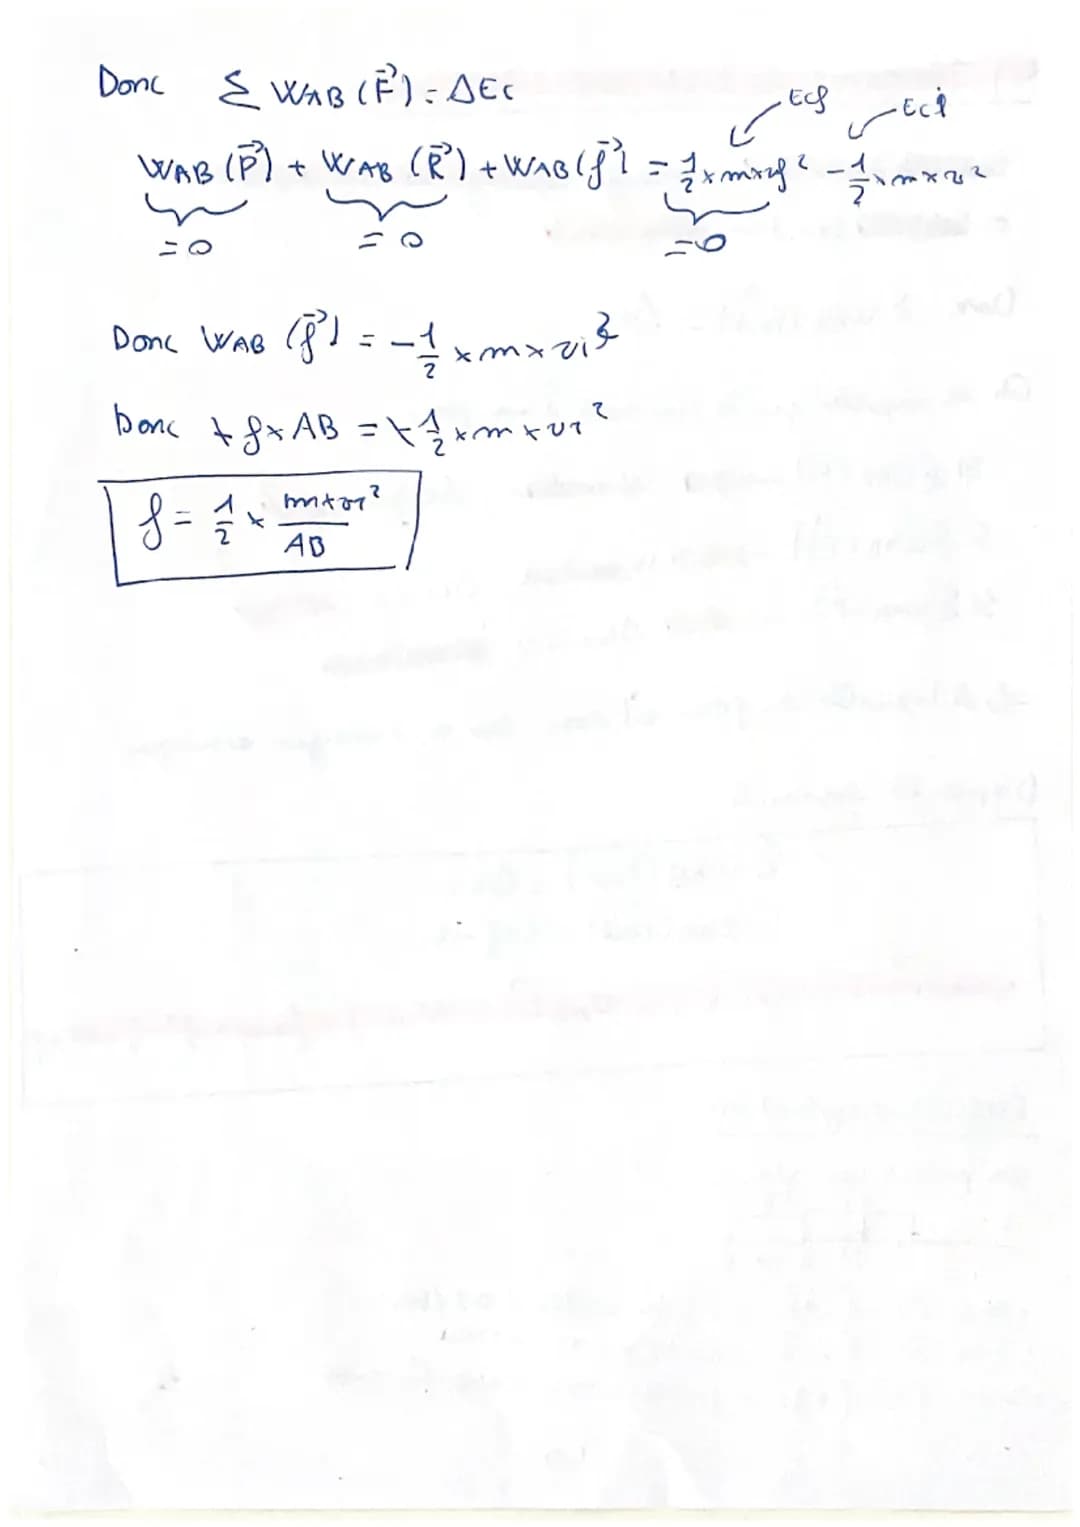 Donc Σ WAB (F⃗) = ΔEc
Ecf Eci
WAB (P⃗) + WAB (R⃗) + WAB (f⃗) = 1/2 × m × vf² - 1/2 × m × vi²
= 0 = 0 = 0
Donc WAB (f⃗) = - 1/2 × m × vi²
Donc + f × AB = + 1/2 × m × vi²
f = 1/2 × m × vi² / AB